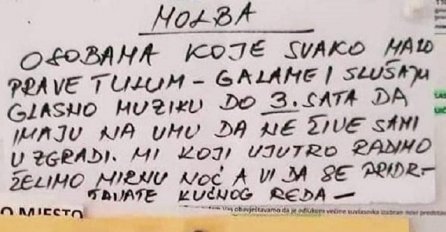 MOLBA
OSOBAMA KOJE SVAKO MALO
PRAVE TULUM - GALAME I SLUŠAJU
GLASNO MUZIKU DO 3. SATA DA
IMAJU NA UMU DA NE ŽIVE SAMI
U ZGRADI. MI KOJI UJUTRO RADIMO
ŽELIMO MIRNU NOĆ A VI DA SE PRIDR-
ŽAVATE KUĆNOG REDA -
O MJESTO
obavještavamo da je odlukom većine suvlasnika izabran novi predst